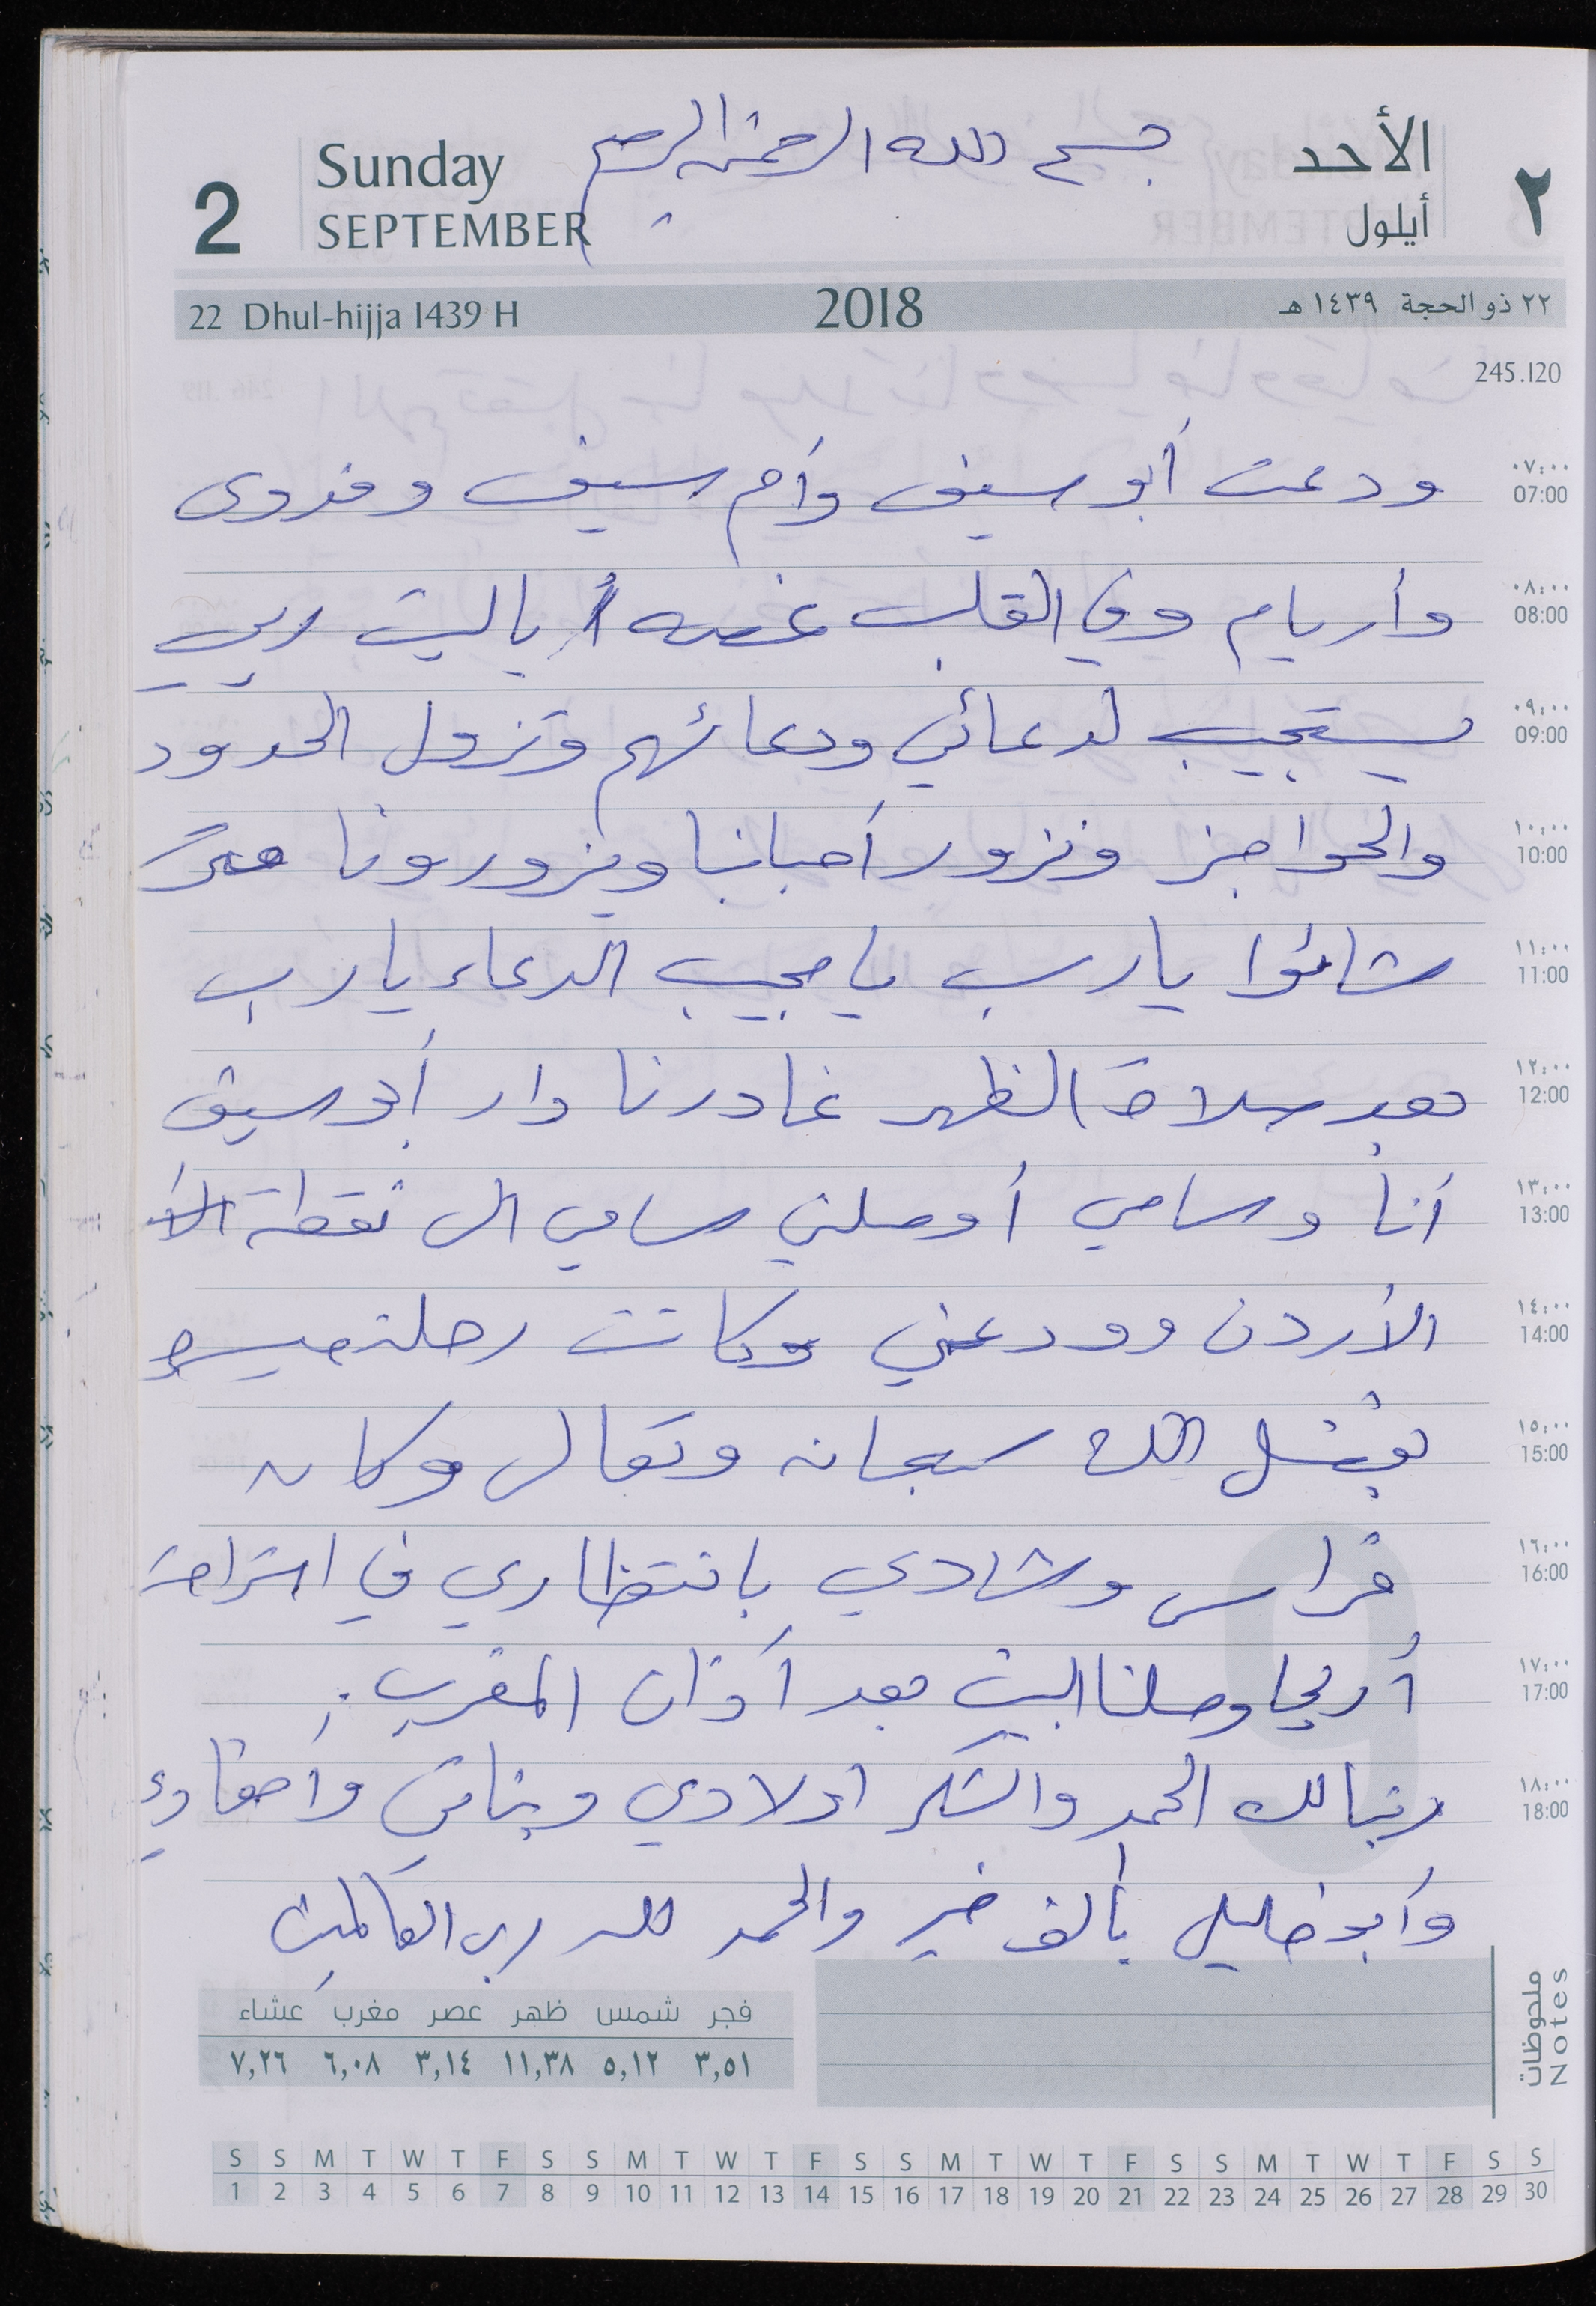 بسم الله الرحمن الرحيم
الأحد
أيلول
٢
Sunday
SEPTEMBER
2
22 Dhul-hijja 1439 H
2018
٢٢ ذو الحجة ١٤٣٩ هـ
245.120
٠٧:٠٠
07:00
ودعت أبو سيف وأم سيف وفدوى
٠٨:٠٠
08:00
وأريام وفي القلب غصه يا ليت ربي
٠٩:٠٠
09:00
يستجيب لدعائي ودعائهم وتزول الحدود
١٠:٠٠
10:00
والحواجز ونزور أحبابنا ويزورونا متى
١١:٠٠
11:00
شائوا يارب يا مجيب الدعاء يارب
١٢:٠٠
12:00
بعد صلاة الظهر غادرنا دار أبو سيف
١٣:٠٠
13:00
أنا وسامي أوصلني سامي الى نقطة
١٤:٠٠
14:00
الأردن وودعني وكانت رحلة ميسره
١٥:٠٠
15:00
بفضل الله سبحانه وتعالى وكان
١٦:٠٠
16:00
فراس وشادي بانتظاري في استراحة
١٧:٠٠
17:00
أريحا وصلنا البيت بعد آذان المغرب.
١٨:٠٠
18:00
ربنا لك الحمد والشكر اولادي وبناتي وأحفادي
وأبو خليل بألف خير والحمد لله رب العالمين
ملحوظات
Notes
فجر شمس ظهر عصر مغرب عشاء
٣,٥١ ٥,١٢ ١١,٣٨ ٣,١٤ ٦,٠٨ ٧,٢٦
S S M T W T F S S M T W T F S S M T W T F S S M T W T F S S
1 2 3 4 5 6 7 8 9 10 11 12 13 14 15 16 17 18 19 20 21 22 23 24 25 26 27 28 29 30